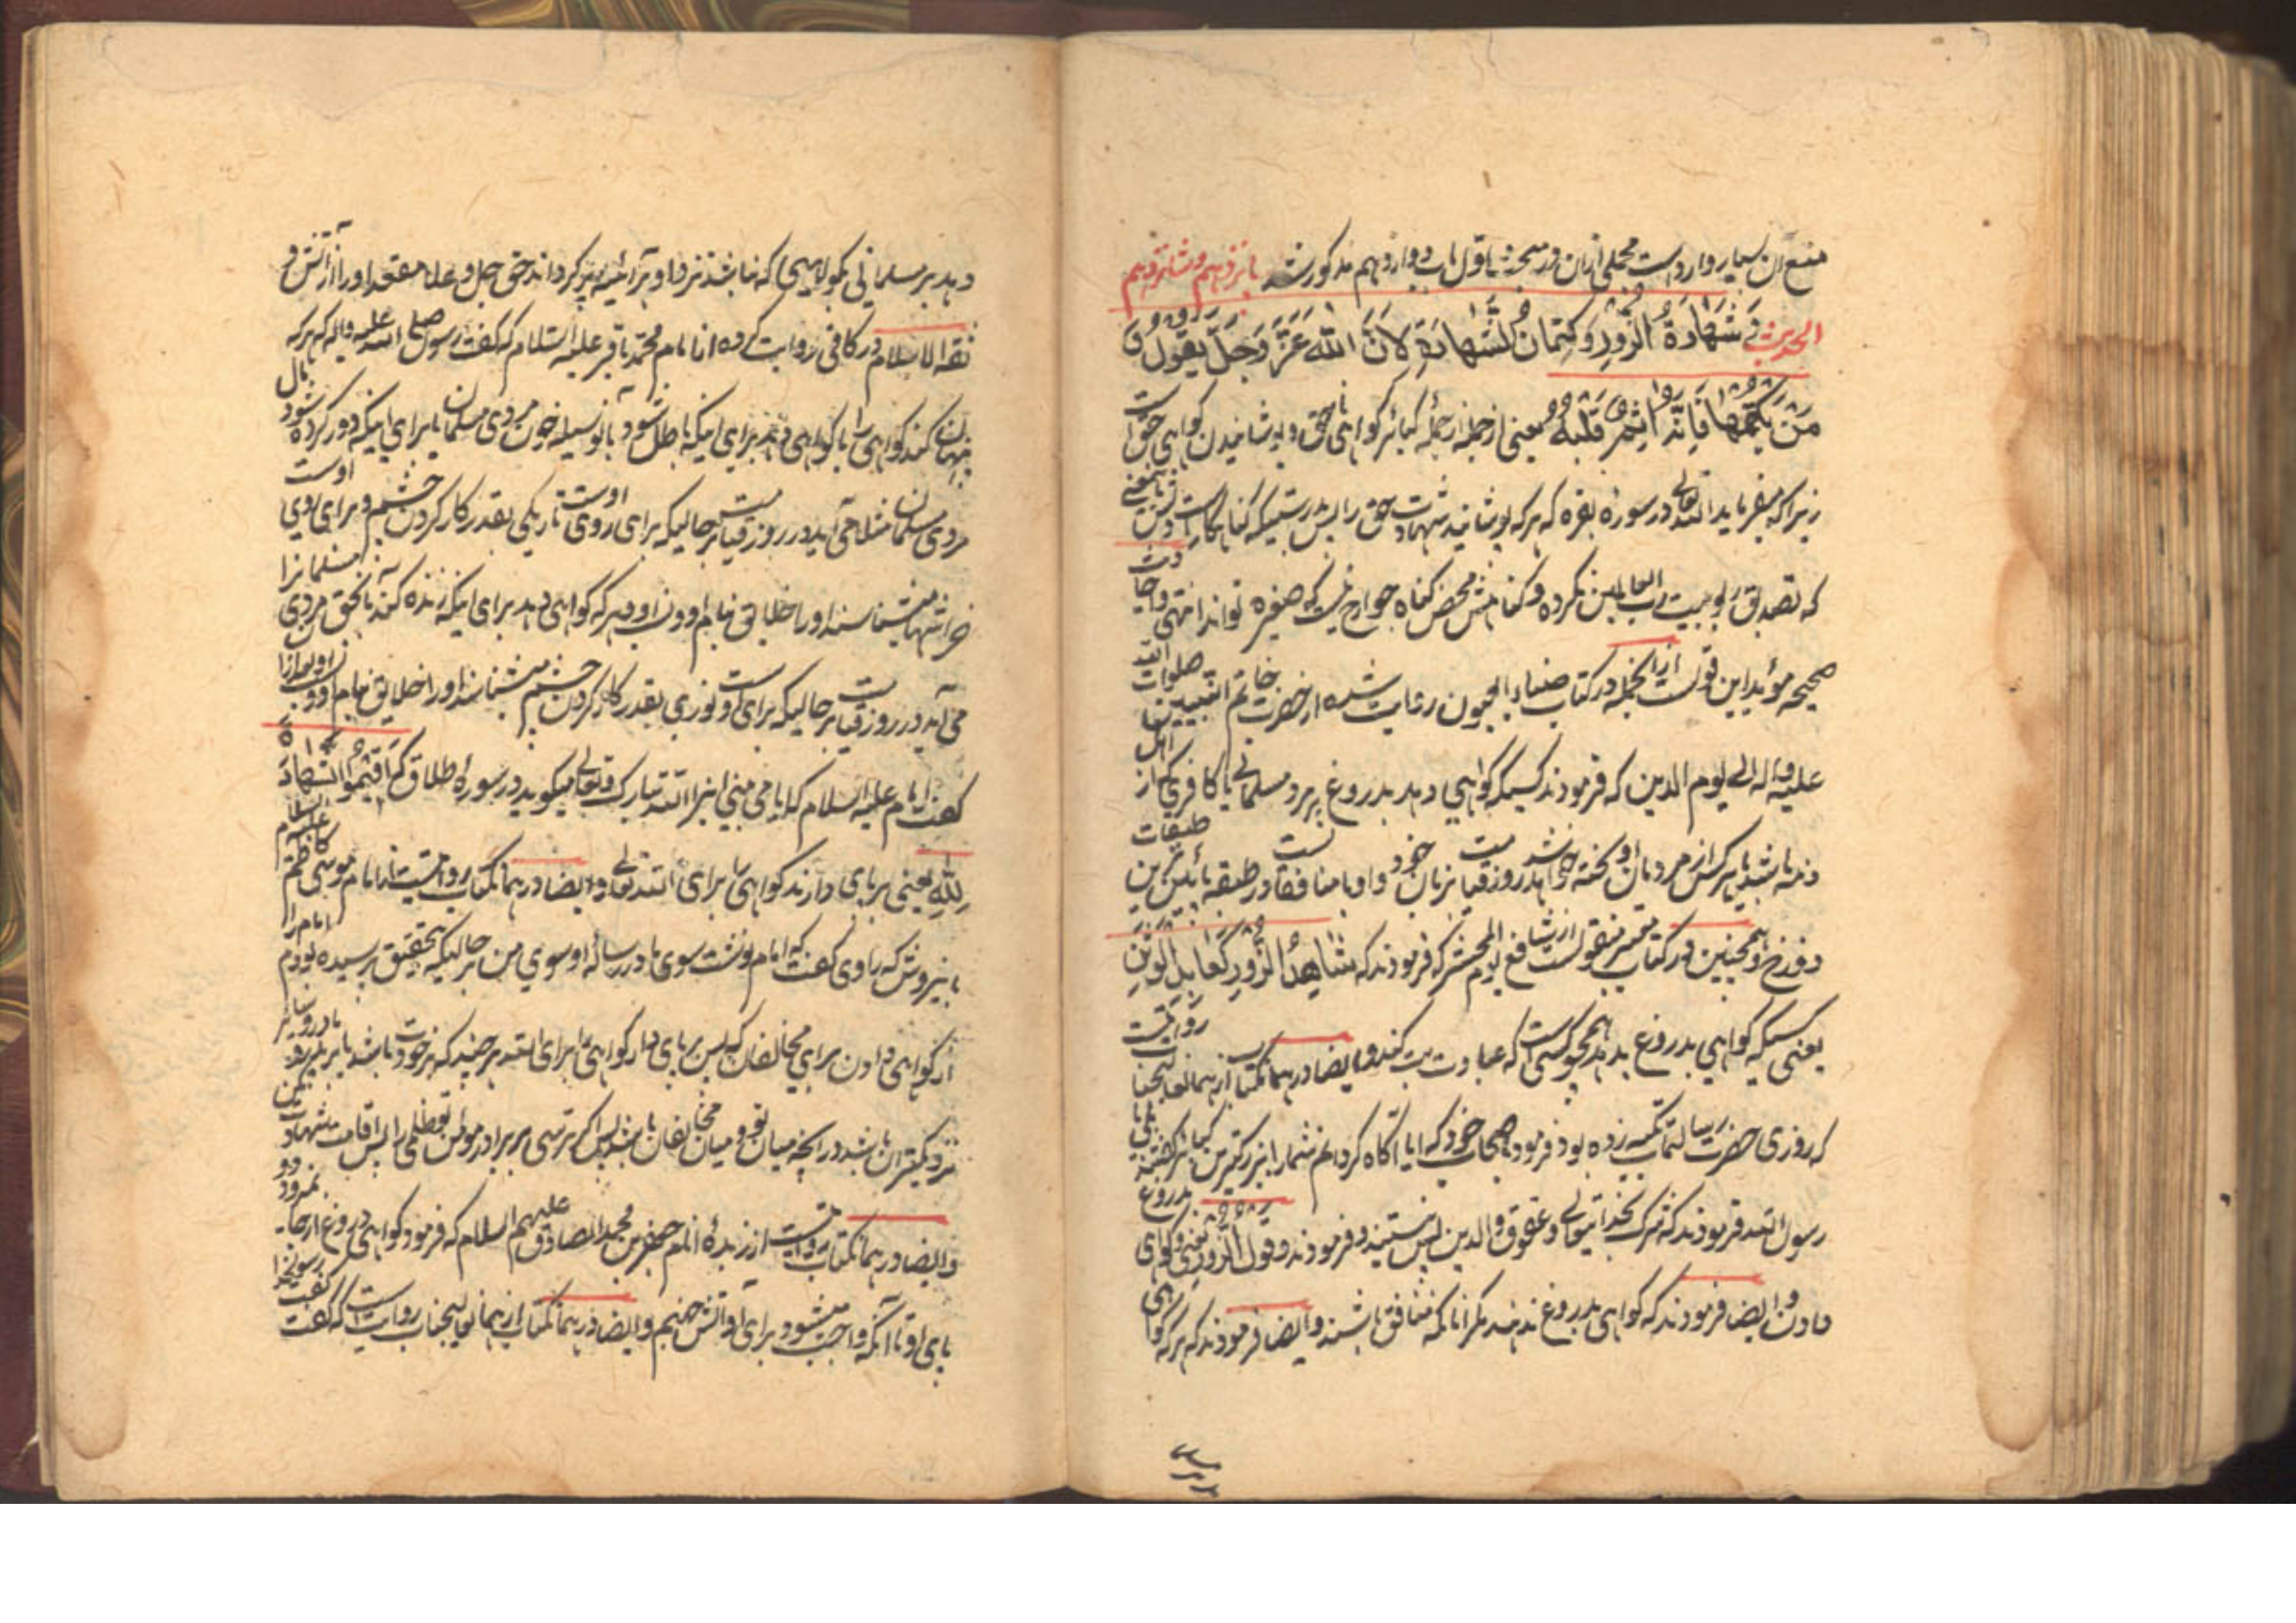 منع ان بسیار وارد است مجملی ازان در مبحث یا قول باب دوازدهم مذکور شد پانزدهم و شانزدهم
الحدیث فی شَهَادَةُ الزُّورِ وَ کِتمَانُ الشَّهَادَةِ لِاَنَّ اللهَ عَزَّ وَ جَلَّ یَقُولُ وَ
مَنْ یَکْتُمْهَا فَاِنَّهُ اٰثِمٌ قَلْبُهُ یعنی از جمله کبائر کواهی ناحق و پوشانیدن کواهی حق است
زیرا که میفرماید الله تعالی در سوره بقره که هر که پوشانید شهادت حق را پس بدرستیکه کناه کار است دلش یعنی
که تصدیق ربوبیت رب العالمین نکرده و کناهش محض کناه جوارح نیست که صغیره تواند انتهی و احادیث
صحیحه مؤید این قولست ازانجمله در کتاب ضیاء العیون روایت شده از حضرت خاتم النبیین صلوات الله
علیه و اله الی یوم الدین که فرمودند کسیکه کواهی دهد بدروغ بر مرد مسلمانی یا کافری که از اهل
ذمه باشد یا هر کس از مردمان او کخته خواهد شد روز قیامت بزبان خود و او با منافقانست در طبقه پائین ترین طبقات
دوزخ و همچنین در کتاب منقولست از شافع یوم المحشر که فرمودند که شَاهِدُ الزُّورِ کَعَابِدِ الْوَثَنِ
یعنی کسیکه کواهی بدروغ بدهد همچو کسی است که عبادت بت کند و ایضا در همان کتاب از همانعالیجناب روایتست
که روزی حضرت رسالتماب تکیه زده بود فرمود باصحاب خود که ایا آکاه کردانم شما را ببزرکترین کبائر کفتند بلی یا
رسول الله فرمودند که شرک بخدایتعالی و عقوق والدین پس نشستند و فرمودند و قول الزور یعنی و کواهی بدروغ
دادن و ایضا فرمودند که کواهی بدروغ ندهند مکر انانکه منافق باشند و ایضا فرمودند که هر که کواهی
دهد بر مسلمانی بکواهی که نباشد نزد او بر آئینه پر کرداند حق جل و علا مقعد او را از آتش و
ثقه الاسلام در کافی روایت کرده از امام محمد باقر علیه السلام که کفت رسول الله صلی الله علیه و اله که هر که
پنهان کند کواهی را یا کواهی دهد برای اینکه باطل شود بانوسیله خون مردی مسلمان یا برای اینکه دور کرده شود مال
مردی مسلمان مثلا می آید در روز قیامت بر حالیکه برای روی اوست تاریکی بقدر کار کردن چشم و برای روی اوست
خراشها میشناسند او را خلایق بنام او و نسب او و هر که کواهی دهد برای اینکه زنده کند بانحق مردی مسلمانرا
می آید در روز قیامت بر حالیکه برای اوست نوری بقدر کار کردن چشم میشناسند او را خلایق بنام او و نسب او بعد ازان
کفت امام علیه السلام که ایا نمی بینی اینرا الله تبارک و تعالی میکوید در سوره طلاق که وَ اَقِیْمُوا الشَّهَادَةَ
لِلّٰهِ یعنی بر پای دارند کواهی را برای الله تعالی و ایضا در همانکتاب روایتست از امام موسی کاظم علیه السلام
باینروش که راوی کفت که امام نوشت سوی ما در رساله او سوی من بر حالیکه بتحقیق پرسیده بودم امام را
از کواهی دادن برای مخالفان که پس بر پای دار کواهی را برای الله هر چند که بر خودت باشد یا بر پدر و مادر و یا بر
نزدیکتران باشد در انچه میان تو و میان مخالفان باشد پس اکر ترسی بر برادر مومن تو ظلمی را پس اقامت شهادت مکن
و ایضا در همانکتاب روایتست از زبده انام جعفر بن محمد الصادق علیهم السلام که فرمود کواهی دروغ از جا نمیرود دو
پای او تا آنکه واجب میشود برای او آتش جهنم و ایضا در همانکتاب از همانعالیجناب روایت است که کفت کفت رسولخدا